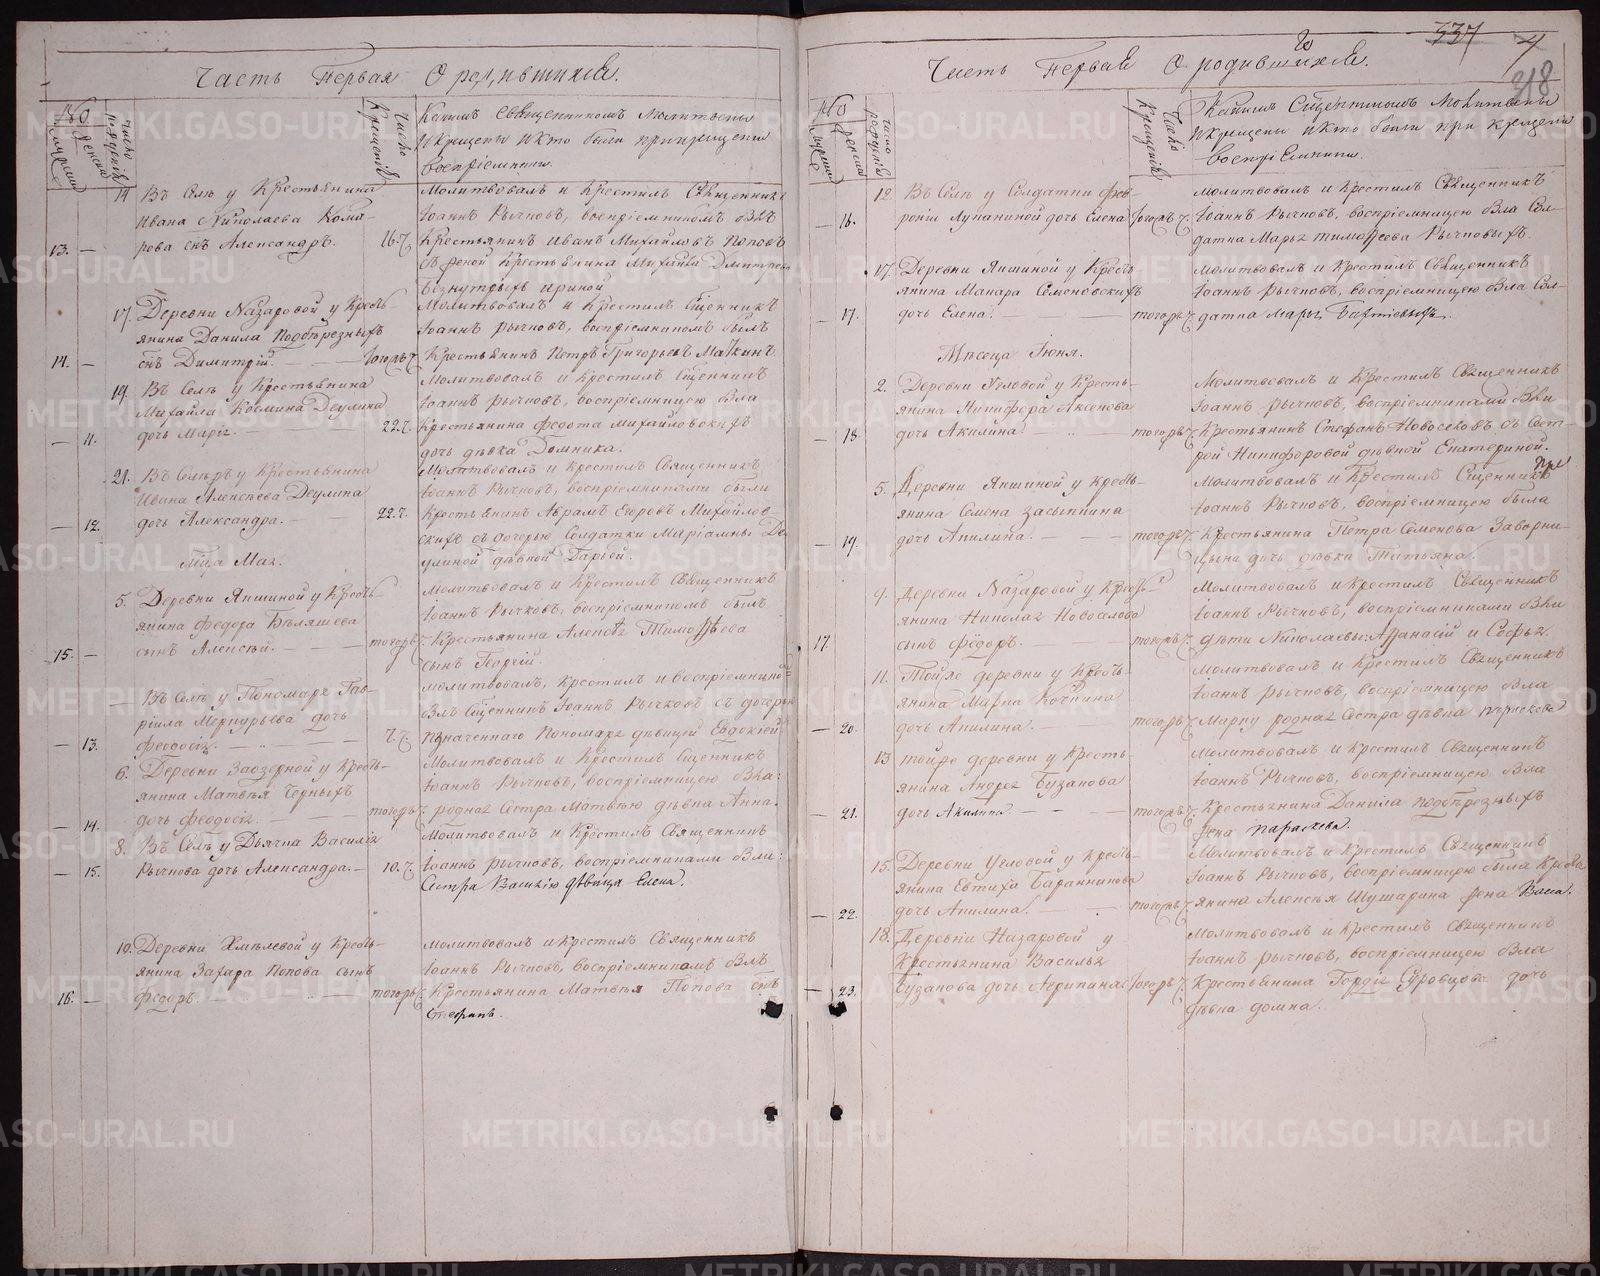 Часть Первая О родившихся.
№
мужеска
женска
число рожденiя
Число Крещенiя
Какимъ Священникомъ Молитвены
и Крещены и кто были при крещенiи
воспрiемники.
14 Въ Селѣ у Крестьянина
Ивана Николаева Кома-
13. — рова снъ Александръ. 16.ч.
Молитвовалъ и Крестилъ Священникъ
Iоаннъ Рычковъ, воспрiемникомъ былъ
Крестьянинъ Иванъ Михайловъ Поповъ
съ женой Крестьянина Михайла Дмитрiева
Ириной
17. Деревни Назаровой у Кресть-
янина Данила Подберезныхъ
14. — снъ Димитрiй. — тогожъ ч.
Молитвовалъ и Крестилъ Сщенникъ
Iоаннъ Рычковъ, воспрiемникомъ былъ
Крестьянинъ Петръ Григорьевъ
19. Въ Селѣ у Крестьянина
Михайла Космина Деулина
— 11. дочь Марiя. 22.ч.
Молитвовалъ и Крестилъ Сщенникъ
Iоаннъ Рычковъ, воспрiемницею была
Крестьянина Федота Михайловскихъ
дочь дѣвка Домника.
21. у Крестьянина
Ивана Алексѣева Деулина
— 12. дочь Александра. — 22.ч.
Молитвовалъ и Крестилъ Священникъ
Iоаннъ Рычковъ, воспрiемниками были
Крестьянинъ Аврамъ Егоровъ Михайлов-
скихъ съ дочерью Солдатки Марiамны Де-
улиной дѣвкой Дарьей.
Мца Мая.
5. Деревни Якшиной у Кресть-
янина Федора Бѣляшева
15. — сынъ Алексѣй. — тогожъ ч.
Молитвовалъ и Крестилъ Священникъ
Iоаннъ Рычковъ, воспрiемникомъ былъ
Крестьянина Алексѣя Тимоѳѣева
сынъ Георгiй.
— Въ Селѣ у Пономаря Гав-
рiила Меркурьева дочь
— 13. Феодосiя. — 7.ч.
Молитвовалъ, Крестилъ и воспрiемникомъ
былъ Сщенникъ Iоаннъ Рычковъ съ дочерью
означеннаго Пономаря дѣвицей Евдокiей.
6. Деревни Заозерной у Кресть-
янина Матвѣя Черныхъ
— 14. дочь Феодосiя. тогожъ ч.
Молитвовалъ и Крестилъ Сщенникъ
Iоаннъ Рычковъ, воспрiемницею была:
родная Сестра Матвѣю дѣвка Анна.
8. Въ Селѣ у Дьячка Василiя
— 15. Рычкова дочь Александра. — 10.ч.
Молитвовалъ и Крестилъ Священникъ
Iоаннъ Рычковъ, воспрiемниками были:
Сестра Василiю дѣвица Елена.
10. Деревни Хмѣлевой у Кресть-
янина Захара Попова сынъ
16. — Федоръ. тогожъ ч.
Молитвовалъ и Крестилъ Священникъ
Iоаннъ Рычковъ, воспрiемникомъ былъ
Крестьянина Матвѣя Попова снъ
Стефанъ.
337
4
318
Часть Первая О родившихся.
№
мужеска
женска
число рожденiя
Число Крещенiя
Какимъ Сщенникомъ Молитвены
и Крещены и кто были при крещенiи
воспрiемники.
12. Въ Селѣ у Солдатки Фев-
— 16. ронiи Лупаниной дочь Елена тогожъ ч.
Молитвовалъ и Крестилъ Священникъ
Iоаннъ Рычковъ, воспрiемницею была Сол-
датка Марья Тимоѳеева Рычковыхъ.
17. Деревни Якшиной у Кресть-
янина Макара Семеновскихъ
— 17. дочь Елена. — тогожъ ч.
Молитвовалъ и Крестилъ Священникъ
Iоаннъ Рычковъ, воспрiемницею была Сол-
датка Марья
Мѣсяца Iюня.
2. Деревни Угловой у Кресть-
янина Никифора Аксенова
— 18. дочь Акилина. тогожъ ч.
Молитвовалъ и Крестилъ Священникъ
Iоаннъ Рычковъ, воспрiемниками были
Крестьянинъ Стефанъ Новоселовъ съ Сест-
рой Никифоровой дѣвкой Екатериной.
5. Деревни Якшиной у Кресть-
янина Семена Засыпкина
— 19. дочь Акилина. — тогожъ ч.
Молитвовалъ и Крестилъ Сщенникъ
Iоаннъ Рычковъ, воспрiемницею была
Крестьянина Петра Семенова Заворни-
цына дочь дѣвка Татьяна.
9. Деревни Назаровой у Кресть-
янина Николая Новоселова
17. сынъ Фiдоръ. — тогожъ ч.
Молитвовалъ и Крестилъ Священникъ
Iоаннъ Рычковъ, воспрiемниками были
дѣти Николаевы: Аѳанасiй и Софья.
11. Тойже деревни у Кресть-
янина Марка Кочкина
— 20. дочь Акилина. — тогожъ ч.
Молитвовалъ и Крестилъ Священникъ
Iоаннъ Рычковъ, воспрiемницею была
Марку родная Сестра дѣвка Параскева
13 тойже деревни у Кресть-
янина Андрея Бузанова
— 21. дочь Акилина. — тогожъ ч.
Молитвовалъ и Крестилъ Священникъ
Iоаннъ Рычковъ, воспрiемницею была
Крестьянина Данила Подберезныхъ
жена Параскева.
15. Деревни Угловой у Кресть-
янина Евтиха Баранникова
— 22. дочь Акилина. — тогожъ ч.
Молитвовалъ и Крестилъ Священникъ
Iоаннъ Рычковъ, воспрiемницею была Кресть-
янина Алексѣя Шушарина жена Васса.
18. Деревни Назаровой у
Крестьянина Василья
— 23. Бузанова дочь Агрипина тогожъ ч.
Молитвовалъ и Крестилъ Священникъ
Iоаннъ Рычковъ, воспрiемницею была
Крестьянина Гордѣя Суровцова дочь
дѣвка Домна.
METRIKI.GASO-URAL.RU